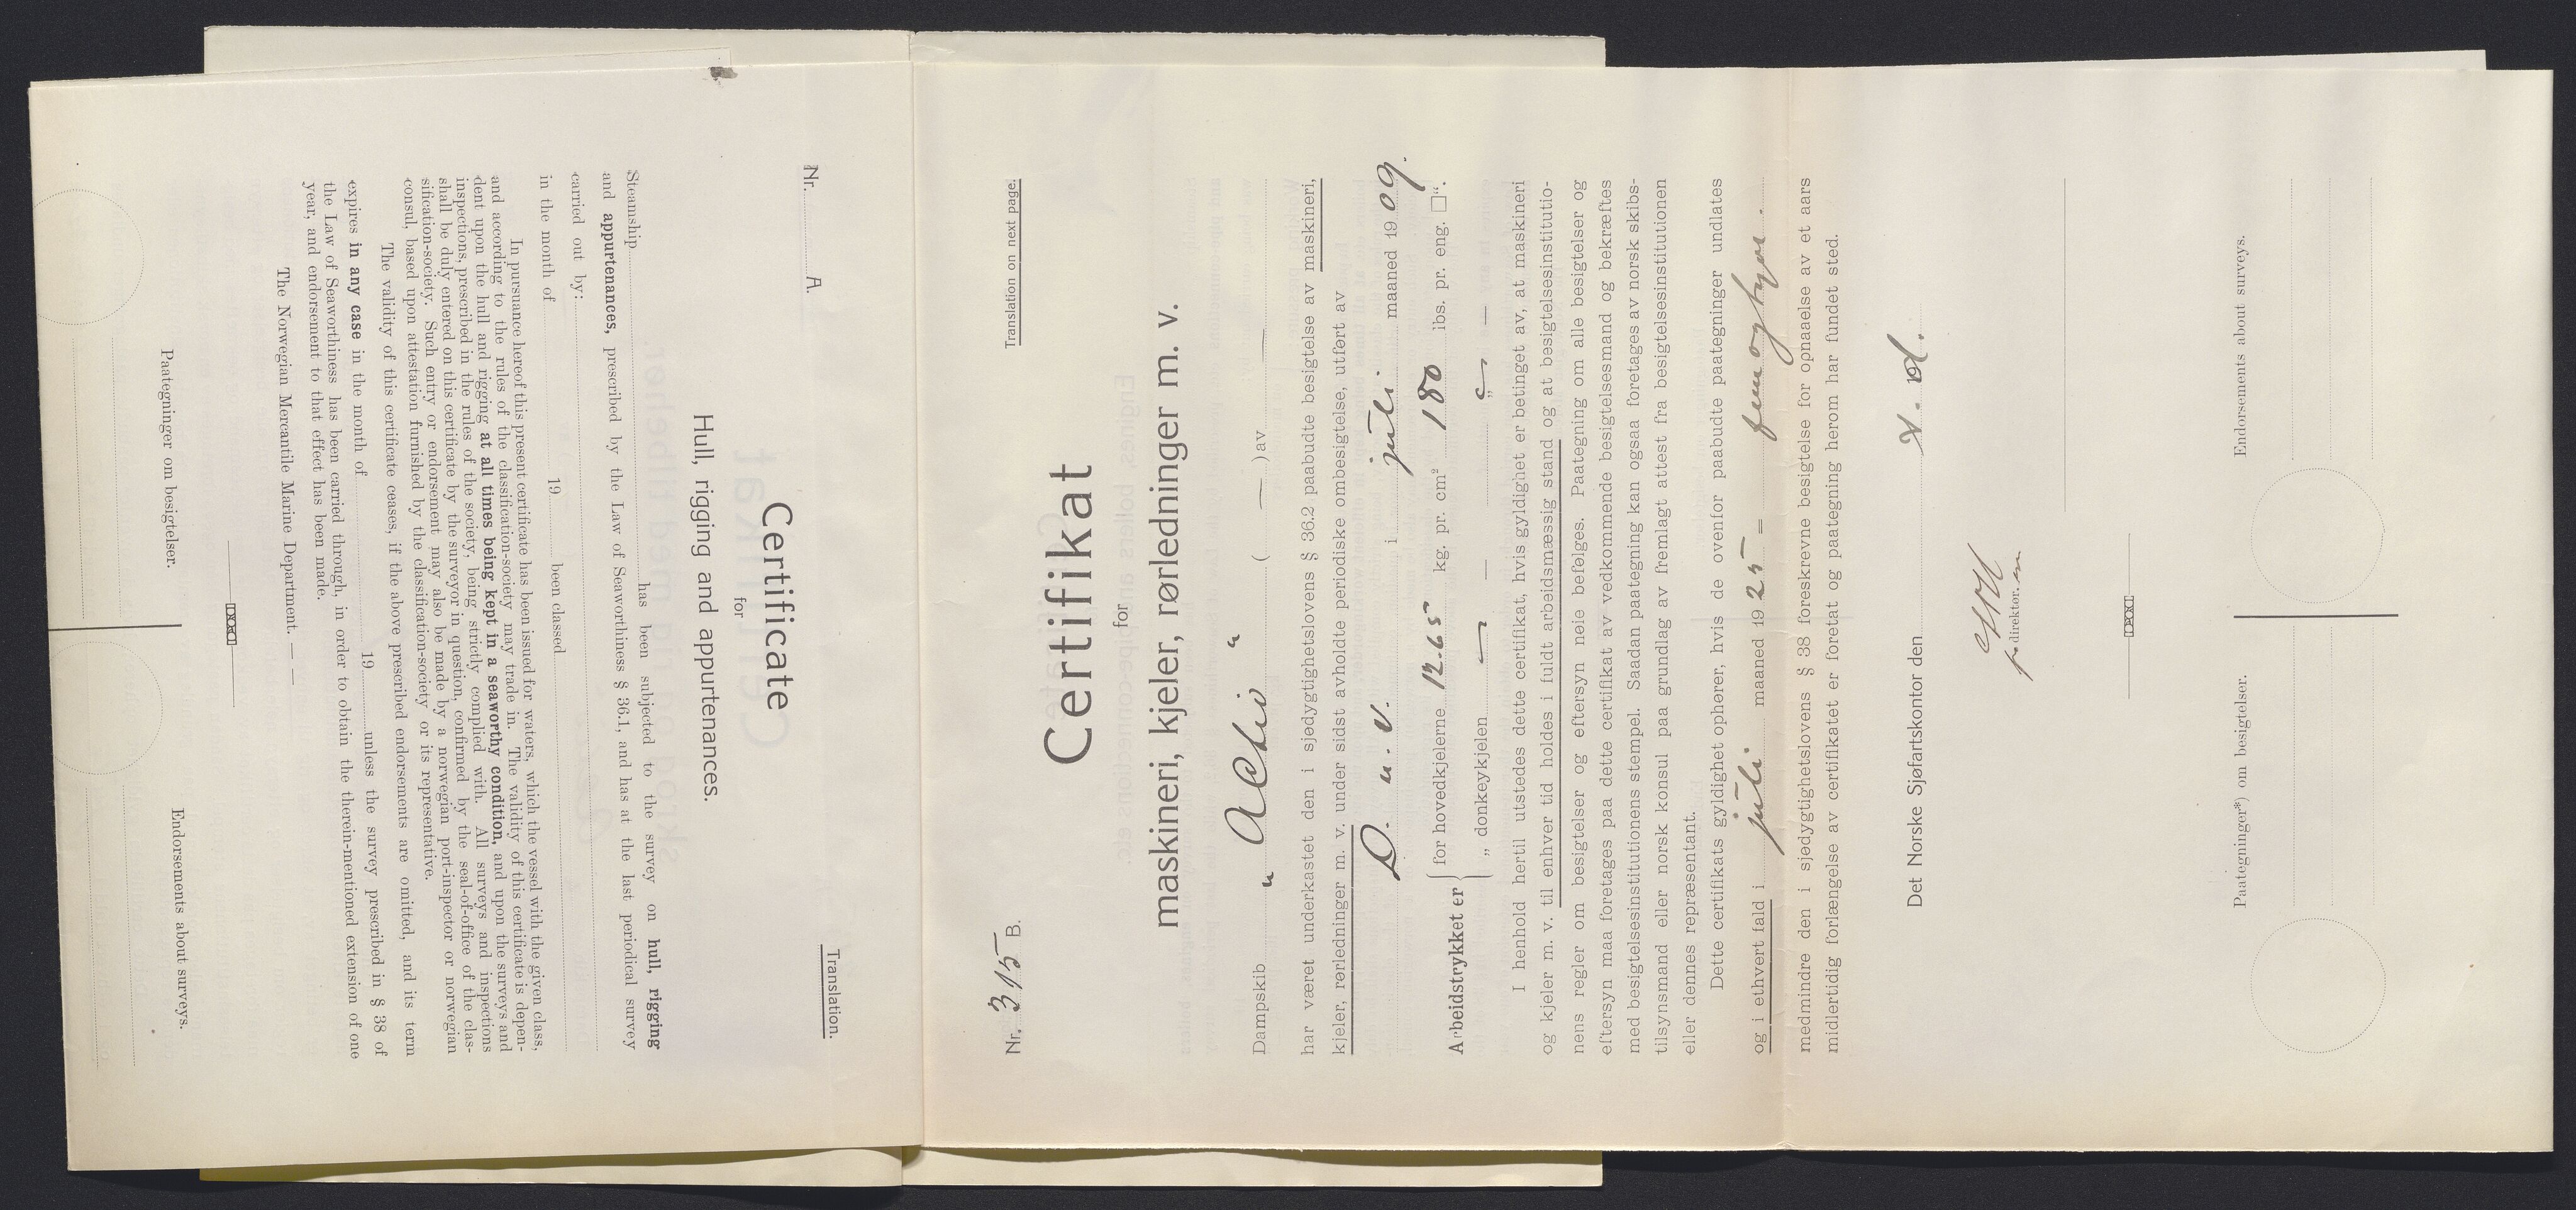 Translation.
Nr. A.
Certificate
for
Hull, rigging and appurtenances.
Steamship has been subjected to the survey on hull, rigging
and appurtenances, prescribed by the Law of Seaworthiness § 36.1, and has at the last periodical survey
carried out by:
in the month of 19 been classed
In pursuance hereof this present certificate has been issued for waters, which the vessel with the given class,
and according to the rules of the classification-society may trade in. The validity of this certificate is depen-
dent upon the hull and rigging at all times being kept in a seaworthy condition, and upon the surveys and
inspections, prescribed in the rules of the society, being strictly complied with. All surveys and inspections
shall be duly entered on this certificate by the surveyor in question, confirmed by the seal-of-office of the clas-
sification-society. Such entry or endorsement may also be made by a norwegian port-inspector or norwegian
consul, based upon attestation furnished by the classification-society or its representative.
The validity of this certificate ceases, if the above prescribed endorsements are omitted, and its term
expires in any case in the month of 19 unless the survey prescribed in § 38 of
the Law of Seaworthiness has been carried through, in order to obtain the therein-mentioned extension of one
year, and endorsement to that effect has been made.
The Norwegian Mercantile Marine Department. — —
Paategninger om besigtelser. Endorsements about surveys.
Nr. 315 B. Translation on next page.
Certifikat
for
maskineri, kjeler, rørledninger m. v.
Dampskib " " ( — ) av —
har været underkastet den i sjødygtighetslovens § 36.2 paabudte besigtelse av maskineri,
kjeler, rørledninger m. v. under sidst avholdte periodiske ombesigtelse, utført av
D. n. V. i juli maaned 1909.
Arbeidstrykket er { for hovedkjelerne 12.65 kg. pr. cm² 180 lbs. pr. eng. □".
„ donkeykjelen — „ — — „ —
I henhold hertil utstedes dette certifikat, hvis gyldighet er betinget av, at maskineri
og kjeler m. v. til enhver tid holdes i fuldt arbeidsmæssig stand og at besigtelsesinstitutio-
nens regler om besigtelser og eftersyn nøie befølges. Paategning om alle besigtelser og
eftersyn maa foretages paa dette certifikat av vedkommende besigtelsesmand og bekræftes
med besigtelsesinstitutionens stempel. Saadan paategning kan ogsaa foretages av norsk skibs-
tilsynsmand eller norsk konsul paa grundlag av fremlagt attest fra besigtelsesinstitutionen
eller dennes repræsentant.
Dette certifikats gyldighet ophører, hvis de ovenfor paabudte paategninger undlates
og i ethvert fald i juli maaned 1925 = fem og tyve.
medmindre den i sjødygtighetslovens § 38 foreskrevne besigtelse for opnaaelse av et aars
midlertidig forlængelse av certifikatet er foretat og paategning herom har fundet sted.
Det Norske Sjøfartskontor den
direktør.
Paategninger*) om besigtelser. Endorsements about surveys.